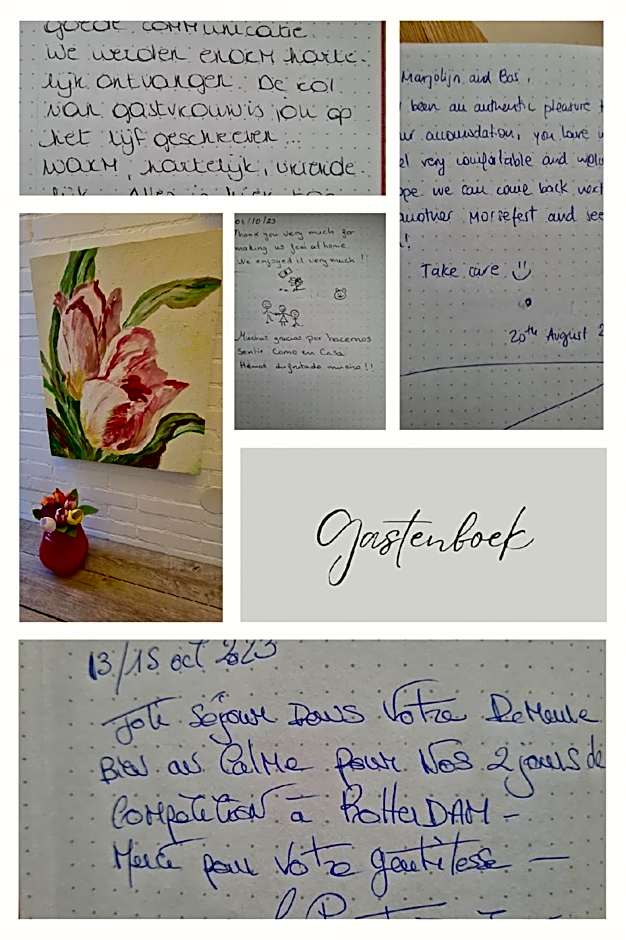 goede communicatie.
We werden enorm harte-
lijk ontvangen. De rol
van gastvrouw is jou op
het lijf geschreven...
warm, hartelijk, vriende-
Marjolijn and Bas,
been an authentic pleasure
accomodation, you have
very comfortable and
we can come back next
another Morsefest and see
!
Take care
20th August 2
01/10/23
Thank you very much for
making us feel at home.
We enjoyed it very much!!
Muchas gracias por hacernos
sentir como en casa
Hemos disfrutado mucho!!
Gastenboek
13/15 oct 2023
Joli séjour dans votre demeure
Bien au calme pour nos 2 jours de
compétition à Rotterdam -
Merci pour votre gentillesse -